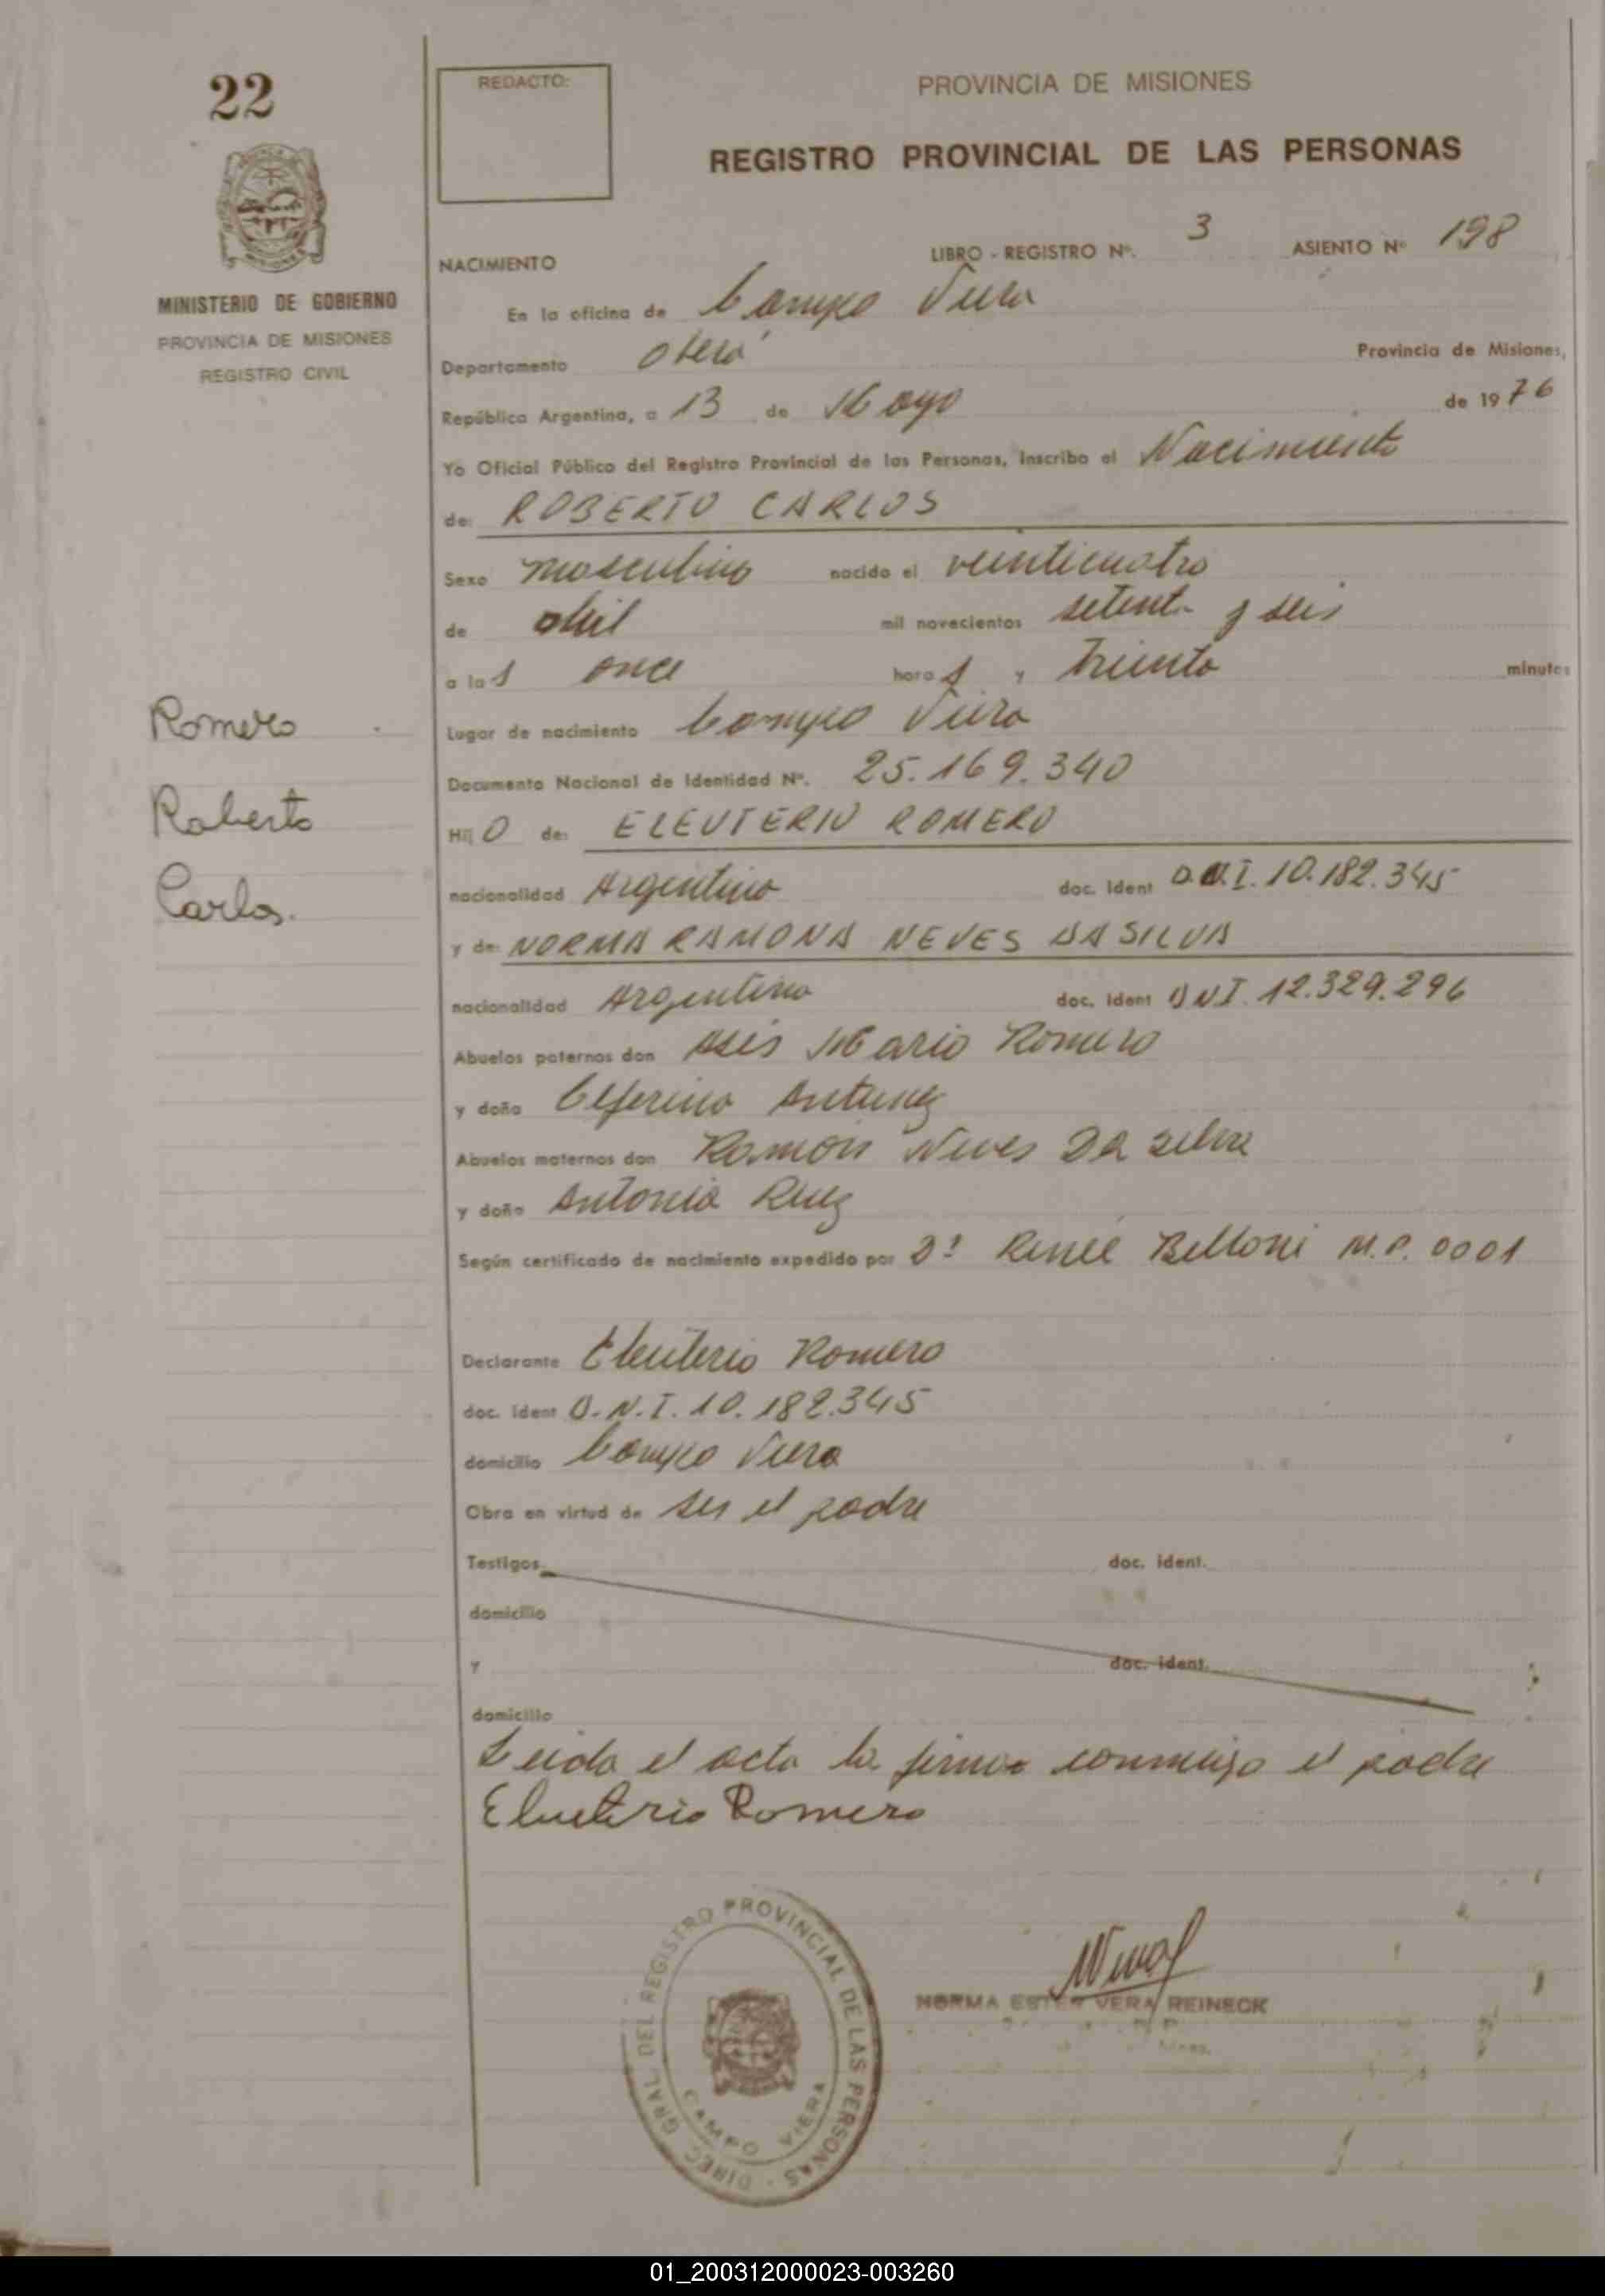 22
REDACTO:
PROVINCIA DE MISIONES
REGISTRO PROVINCIAL DE LAS PERSONAS
MINISTERIO DE GOBIERNO
PROVINCIA DE MISIONES
REGISTRO CIVIL
LIBRO - REGISTRO Nº. 3 ASIENTO Nº 198
NACIMIENTO
En la oficina de Campo Viera
Departamento Oberá Provincia de Misiones,
República Argentina, a 13 de Mayo de 1976
Yo Oficial Público del Registro Provincial de las Personas, inscribo el Nacimiento
de: ROBERTO CARLOS
Sexo masculino nacido el veinticuatro
de abril mil novecientos setenta y seis
a las once horas y treinta minutos
Lugar de nacimiento Campo Viera
Documento Nacional de Identidad Nº. 25.169.340
Hijo de: ELEUTERIO ROMERO
nacionalidad Argentino doc. ident D.N.I. 10.182.345
y de: NORMA RAMONA NEVES DA SILVA
nacionalidad Argentina doc. ident DNI. 12.329.296
Abuelos paternos don Mario Romero
y doña Ceferina Antunez
Abuelos maternos don Ramón Neves Da Silva
y doña Antonia Ruiz
Según certificado de nacimiento expedido por Dr Renée Belloni M.P. 0001
Declarante Eleuterio Romero
doc. ident D.N.I. 10.182.345
domicilio Campo Viera
Obra en virtud de ser el padre
Testigos doc. ident.
domicilio
y doc. ident.
domicilio
Leida el acta la firma conmigo el padre
Eleuterio Romero
Romero
Roberto
Carlos.
DIREC. GRAL. DEL REGISTRO PROVINCIAL DE LAS PERSONAS
CAMPO VIERA
NORMA ESTER VERA REINECK
01_200312000023-003260